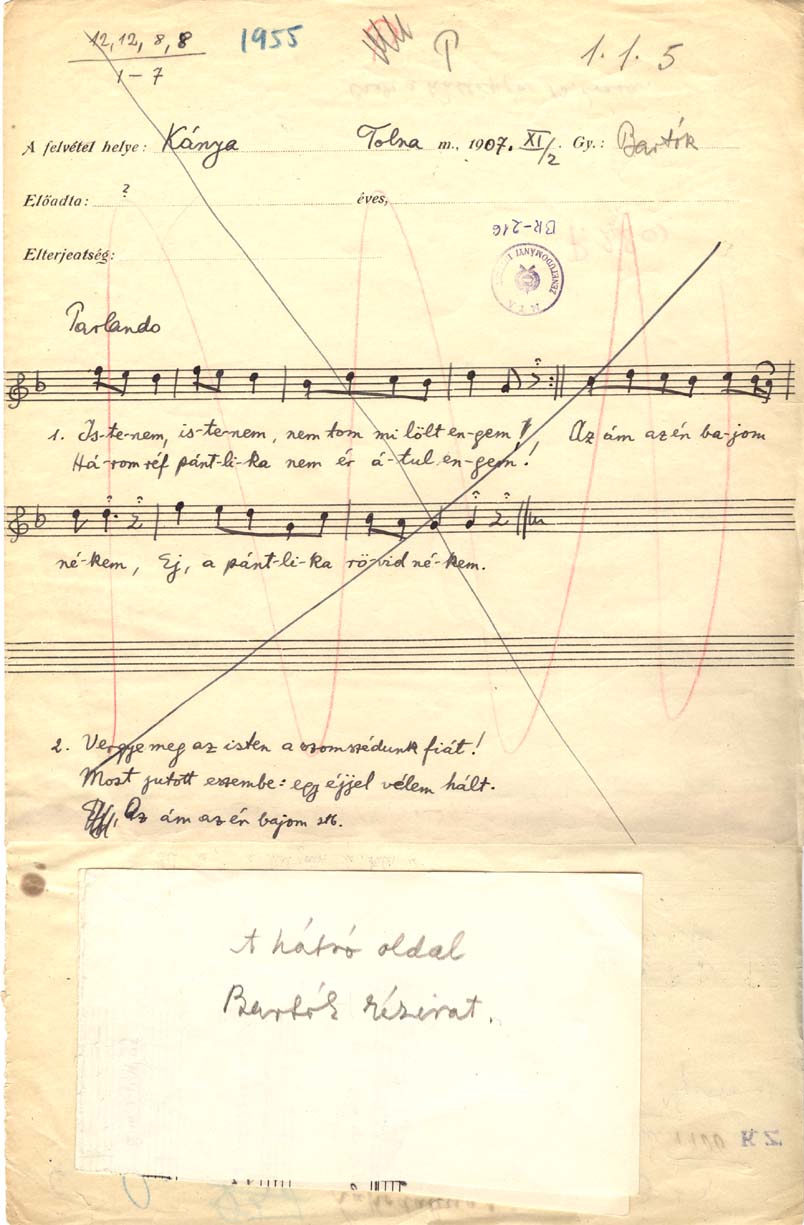 12, 12, 8, 8 1955 P 1. 1. 5
1-7
A felvétel helye: Kánya Tolna m., 1907. XI/2. Gy.: Bartók
Előadta: ? éves,
BR-216
Elterjeatség:
ZENETUDOMÁNYI
M T A
Parlando
1. Is-te-nem, is-te-nem, nem tom mi lölt en-gem! Az ám az én ba-jom
Há-rom réf pánt-li-ka nem ér á-tul en-gem!
né-kem, Ej, a pánt-li-ka rö-vid né-kem.
2. Vergye meg az isten a szomszédunk fiát!
Most jutott eszembe: egy éjjel vélem hált.
Az ám az én bajom stb.
A hátsó oldal
Bartók kézirat.